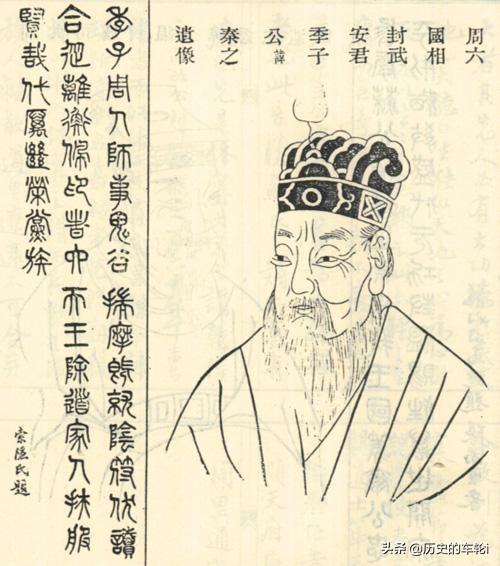 周六
國相
封武
安君
季子
公諱
秦之
遺像
季子周人師事鬼谷揣摩既就陰符伏讀
合從離衡佩印者六天王除道家人扶服
賢哉代厲繼榮黨族
索隱氏題
头条 @历史的车轮i